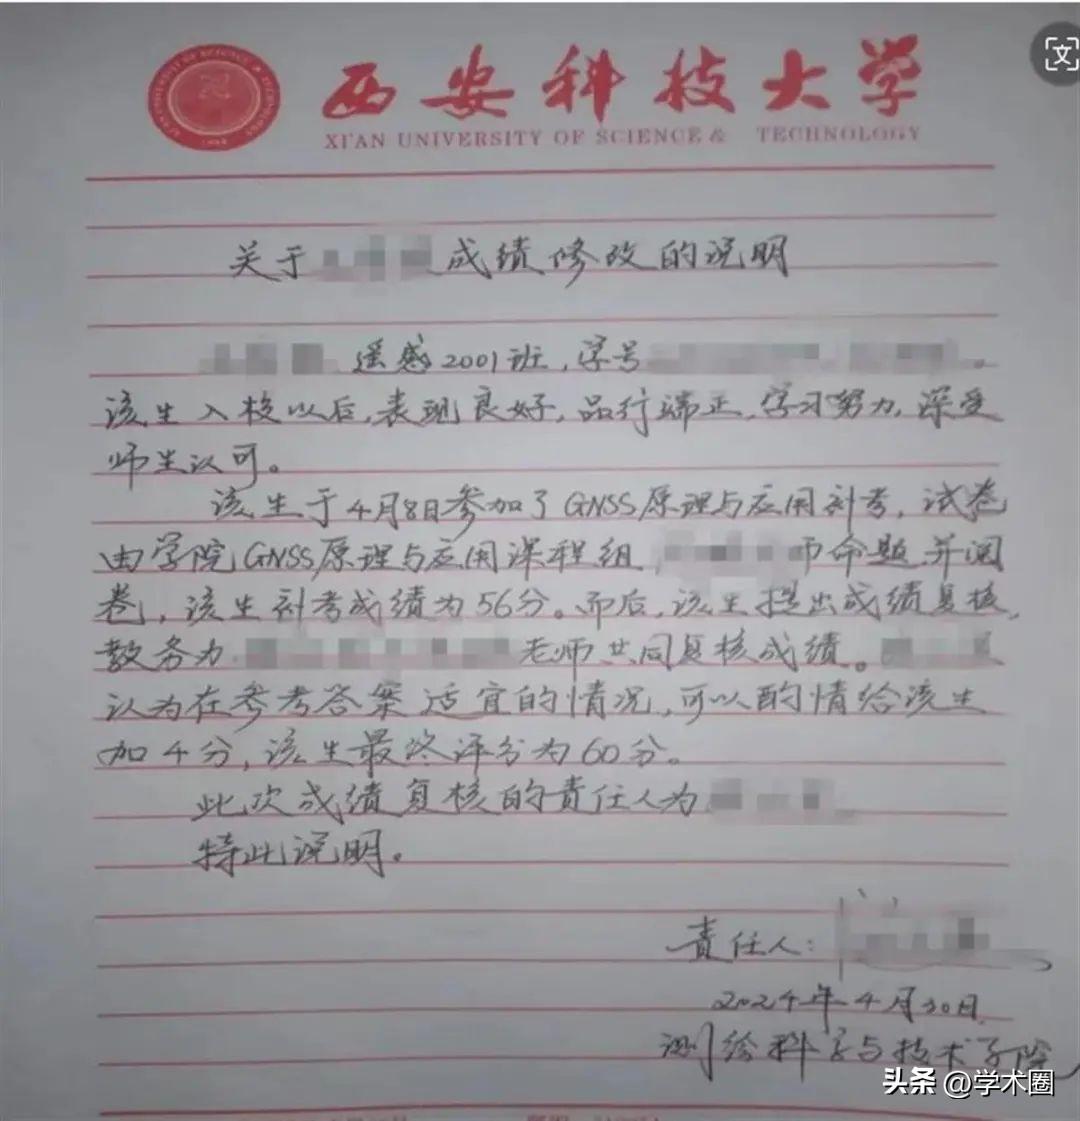 西安科技大学
XI'AN UNIVERSITY OF SCIENCE & TECHNOLOGY
关于 成绩修改的说明
遥感2001班，学号 。
该生入校以后，表现良好，品行端正，学习努力，深受
师生认可。
该生于4月8日参加了GNSS原理与应用补考，试卷
由学院GNSS原理与应用课程组 师命题并阅
卷，该生补考成绩为56分。而后，该生提出成绩复核，
教务办 老师共同复核成绩。
认为在参考答案适宜的情况，可以酌情给该生
加4分，该生最终评分为60分。
此次成绩复核的责任人为
特此说明。
责任人：
2024年4月30日
测绘科学与技术学院
头条 @学术圈